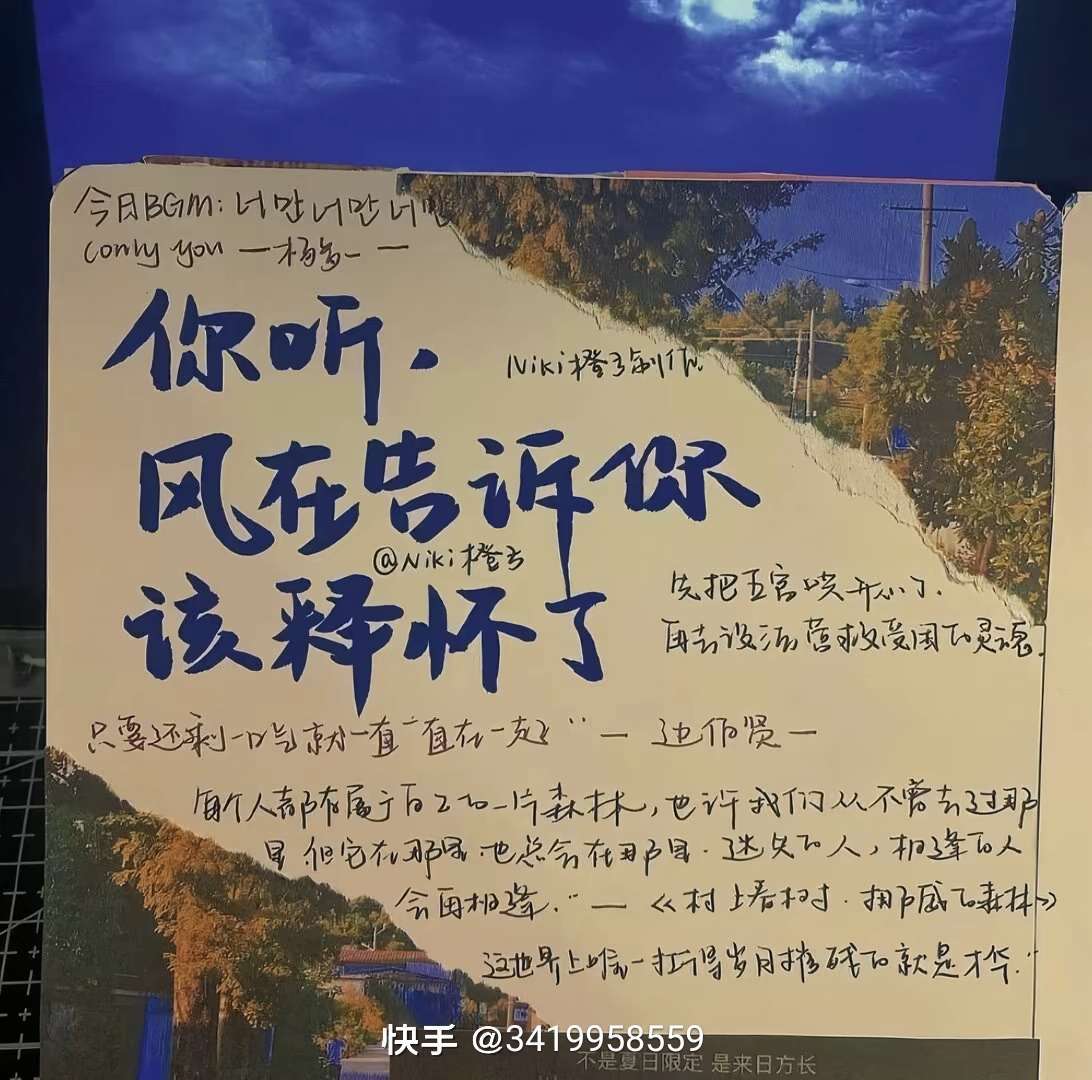 今日BGM: 너만너만너만
(only you — 杨多一 —
你听，
Niki橙子制作
风在告诉你
@Niki橙子
该释怀了
先把五官哄开心了，
再去设法营救受困的灵魂。
只要还剩一口气就一直一直在一起” — 边伯贤 —
每个人都有属于自己的一片森林，也许我们从不曾去过那
里 但它在那里，也总会在那里．迷失的人，相逢的人
会再相逢．” — 《村上春树，挪威的森林》
这世界上唯一扛得岁月摧残的就是才华．”
快手 @3419958559
不是夏日限定 是来日方长